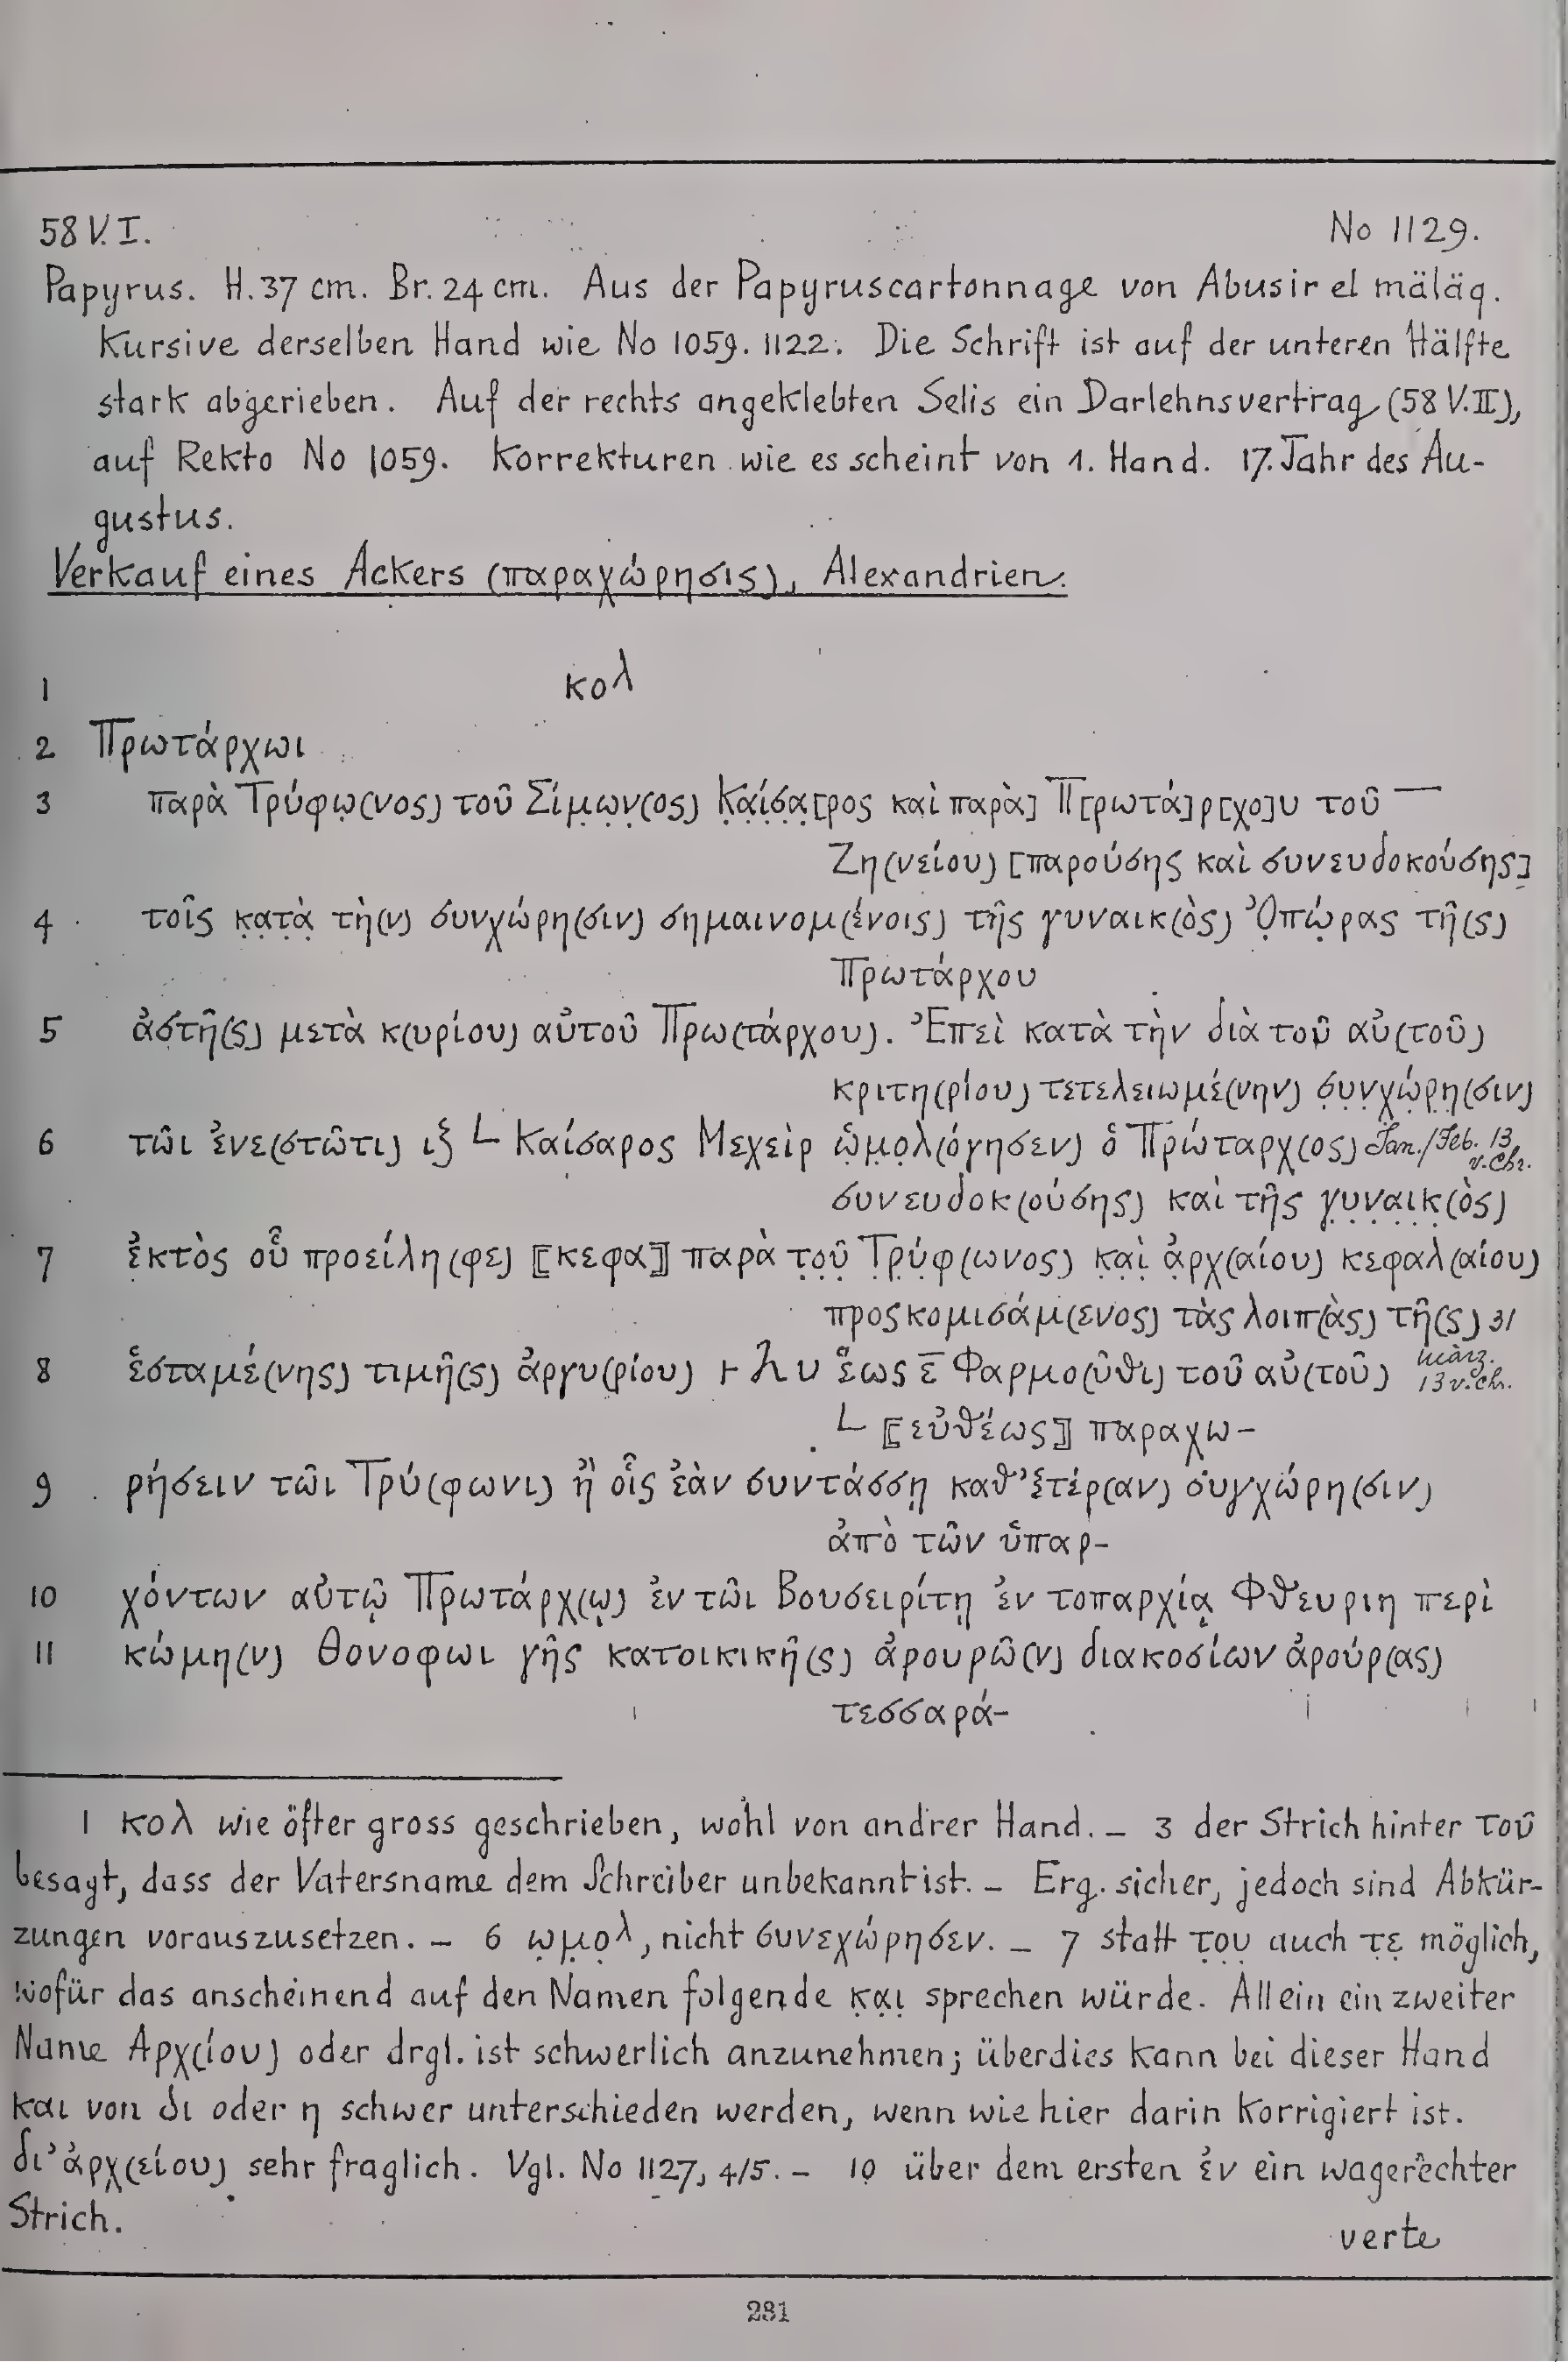 58 V. I. No 1129.
Papyrus. H. 37 cm. Br. 24 cm. Aus der Papyruscartonnage von Abusir el mäläq.
Kursive derselben Hand wie No 1059. 1122. Die Schrift ist auf der unteren Hälfte
stark abgerieben. Auf der rechts angeklebten Selis ein Darlehnsvertrag (58 V. II),
auf Rekto No 1059. Korrekturen wie es scheint von 1. Hand. 17. Jahr des Au-
gustus.
Verkauf eines Ackers (παραχώρησις), Alexandrien.
1 κολ
2 Πρωτάρχωι
3 παρὰ Τρύφω̣(νος) τοῦ Σίμ̣ω̣ν̣(ος) Κ̣α̣ί̣σ̣α̣[ρος καὶ παρὰ] Π[ρωτά]ρ[χο]υ τοῦ —
Ζη(νείου) [παρούσης καὶ συνευδοκούσης]
4 τοῖς κ̣α̣τ̣ὰ̣ τὴ(ν) συνχώρη(σιν) σημαινομ(ένοις) τῆς γυναικ(ὸς) Ὀ̣πώ̣ρας τῆ(ς)
Πρωτάρχου
5 ἀστῆ(ς) μετὰ κ(υρίου) αὐτοῦ Πρω(τάρχου). Ἐπεὶ κατὰ τὴν διὰ τοῦ αὐ(τοῦ)
κριτη(ρίου) τετελειωμέ(νην) σ̣υ̣ν̣χ̣ώ̣ρ̣η̣(σιν)
6 τῶι ἐνε(στῶτι) ιξ └ Καίσαρος Μεχεὶρ ὡ̣μ̣ο̣λ(όγησεν) ὁ Πρώταρχ(ος) Jan./Feb. 13
v. Chr.
συνευδοκ(ούσης) καὶ τῆς γ̣υ̣ν̣α̣ι̣κ̣(ὸς)
7 ἐ̣κτὸς οὗ προείλη(φε) ⟦κεφα⟧ παρὰ τ̣ο̣ῦ̣ Τ̣ρ̣ύ̣φ(ωνος) κ̣α̣ὶ̣ ἀ̣ρχ(αίου) κεφαλ(αίου)
προσκομισάμ(ενος) τὰς λοιπ(ὰς) τῆ(ς) 31
8 ἑσταμέ(νης) τιμῆ(ς) ἀργυ(ρίου) 𐅂 λ υ ἕως ε̅ Φαρμο(ῦθι) τοῦ αὐ(τοῦ) März.
13 v. Chr.
└ ⟦εὐθέως⟧ παραχω-
9 ρήσειν τῶι Τρύ(φωνι) ἢ οἷς ἐὰν συντάσσῃ καθ’ ἑτέρ(αν) συγχώρη(σιν)
ἀπὸ τῶν ὑπαρ-
10 χόντων αὐτῷ Πρωτάρχ(ῳ) ἐν τῶι Βουσειρίτῃ ἐν τοπαρχίᾳ Φθευριη περὶ
11 κώμη(ν) Θονοφωι γῆς κατοικικῆ(ς) ἀρουρῶ(ν) διακοσίων ἀρούρ(ας)
τεσσαρά-
1 κολ wie öfter gross geschrieben, wohl von andrer Hand. – 3 der Strich hinter τοῦ
besagt, dass der Vatersname dem Schreiber unbekannt ist. – Erg. sicher, jedoch sind Abkür-
zungen vorauszusetzen. – 6 ω̣μ̣ο̣λ, nicht συνεχώρησεν. – 7 statt τ̣ο̣υ̣ auch τ̣ε̣ möglich,
wofür das anscheinend auf den Namen folgende κ̣α̣ι̣ sprechen würde. Allein ein zweiter
Name Αρχ(ίου) oder drgl. ist schwerlich anzunehmen; überdies kann bei dieser Hand
και von δι oder η schwer unterschieden werden, wenn wie hier darin korrigiert ist.
δι’ ἀρχ(είου) sehr fraglich. Vgl. No 1127, 4/5. – 10 über dem ersten ἐν ein wagerechter
Strich.
verte
281